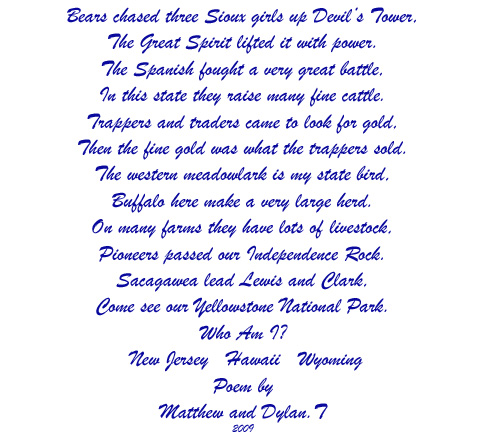 Bears chased three Sioux girls up Devil's Tower,
The Great Spirit lifted it with power.
The Spanish fought a very great battle,
In this state they raise many fine cattle.
Trappers and traders came to look for gold,
Then the fine gold was what the trappers sold.
The western meadowlark is my state bird,
Buffalo here make a very large herd.
On many farms they have lots of livestock,
Pioneers passed our Independence Rock.
Sacagawea lead Lewis and Clark,
Come see our Yellowstone National Park.
Who Am I?
New Jersey Hawaii Wyoming
Poem by
Matthew and Dylan. T
2009